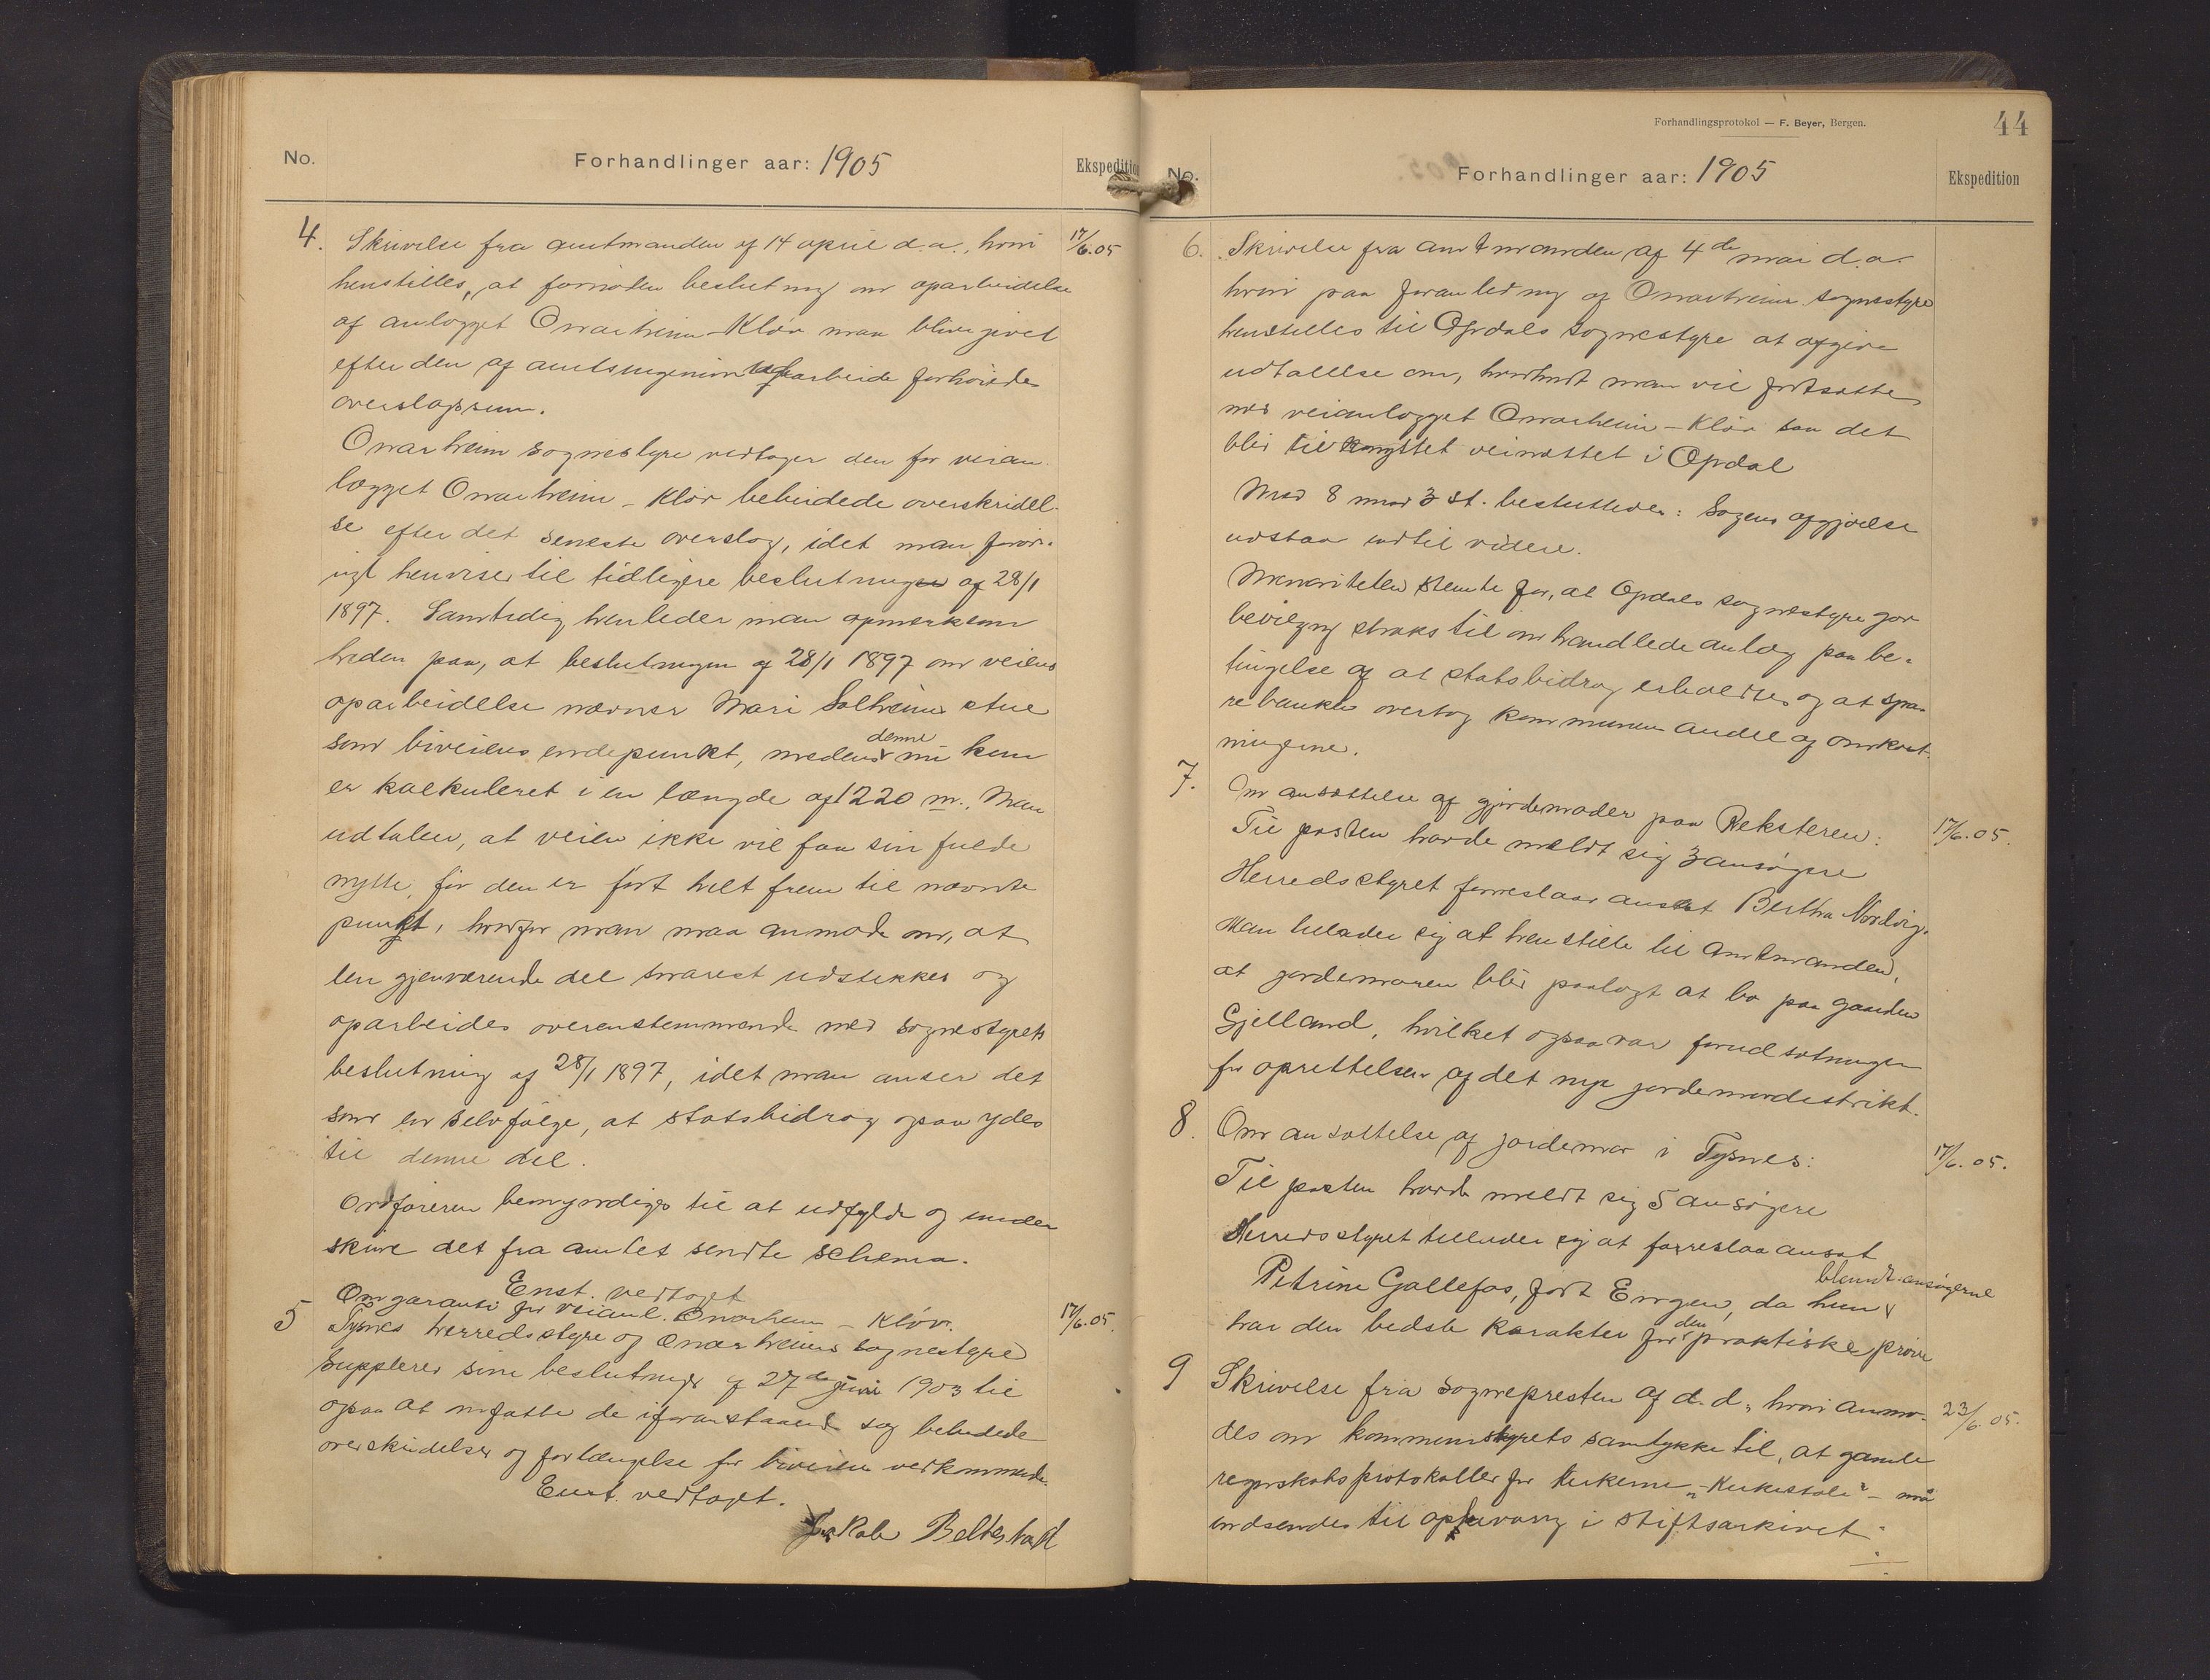 No.
Forhandlinger aar: 1905
Ekspedition
4. Skrivelse fra amtmanden af 14 april d.a., hvori 17/6.05
henstilles, at fornöden beslutning om oparbeidelse
af anlægget Onarheim – Klör maa blive givet
efter den af amtsingeniör udarbeide forhöiede
overslagssum.
Onarheim sognestyre vedtager den for veian-
lægget Onarheim – Klör bebeidede overskridel-
se efter det seneste overslag, idet man forövr-
igt henviser til tidligere beslutninger af 28/1
1897. Samtidig henleder man opmerksom
heden paa, at beslutningen af 28/1 1897 om veiens
oparbeidelse nævner Mari Solheims stue
som biveiens endepunkt, medens denne nu kun
er kalkuleret i en længde af 1220 m. Man
udtaler, at veien ikke vil faa sin fulde
nytte, för den er fört helt frem til nævnte
punkt, hvorfor man maa anmode om, at
den gjenværende del snarest udstikkes og
oparbeides overenstemmende med sognestyrets
beslutning af 28/1 1897, idet man anser det
som en selvfölge, at statsbidrag ogsaa ydes
til denne del.
Ordföreren bemyndiges til at udfylde og under
skrive det fra amtet sendte schema.
Enst. vedtaget
5 Om garanti for veianl. Onarheim – Klör. 17/6.05.
Tysnes herredsstyre og Onarheims sognestyre
supplerer sine beslutninger af 27de juni 1903 til
ogsaa at omfatte de iforanstaaende sag bebudede
overskridelser og forlængelse for biveien vedkommende.
Enst. vedtaget.
Jakob Beltestad
Forhandlingsprotokol — F. Beyer, Bergen.
44
No.
Forhandlinger aar: 1905
Ekspedition
6. Skrivelse fra amtmanden af 4de mai d.a.
hvori paa foranledning af Onarheim sognestyre
henstilles til Opdals sognestyre at afgive
udtallelse om, hvorhvidt man vil fortsætte
med veianlægget Onarheim – Klör saa det
blir tilknyttet veinættet i Opdal
Med 8 mod 3 st. besluttedes: Sagens afgjörelse
udstaar indtil videre.
Menoriteten stemte for, at Opdals sognestyre gör
bevilgning straks til omhandlede anlæg paa be-
tingelse af at statsbidrag erholdtes og at spa-
rebanken overtog kommunens andel af omkost-
ningerne.
7. Om ansættelse af gjordemoder paa Reksteren: 17/6.05.
Til posten havde meldt sig 3 ansögere
Herredsstyret foreslaar ansat Bertha Nordvig.
Man tillader sig at henstille til amtmanden,
at jordemoren blir paalagt at bo paa gaarden
Gjelland, hvilket ogsaa var forudsætningen
for oprettelsen af det nye jordemordistrikt.
8. Om ansættelse af jordemor i Tysnes: 17/6.05.
Til posten havde meldt sig 5 ansögere
Herredsstyret tillader sig at foreslaa ansat
Petrine Gallefos, födt Engen, da hun blandt ansögerne
har den bedste karakter for den praktiske pröve
9 Skrivelse fra sognepresten af d.d., hvori anmo- 23/6.05.
des om kommunstyrets samtykke til, at gamle
regnskabsprotokoller for kirkerne „– Kirkestole" – må
indsendes til opbevaring i stiftsarkivet.